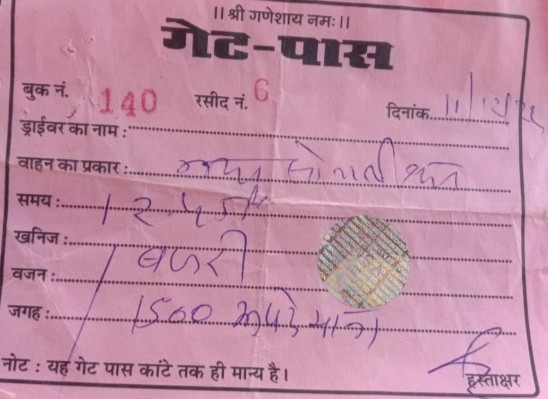 ।। श्री गणेशाय नमः ।।
गेट-पास
बुक नं. 140 रसीद नं. 6 दिनांक 11/12/
ड्राईवर का नाम :
वाहन का प्रकार :
समय :
खनिज : बजरी
वजन :
जगह : 1500 रूपये मात्र
नोट : यह गेट पास कांटे तक ही मान्य है।
हस्ताक्षर